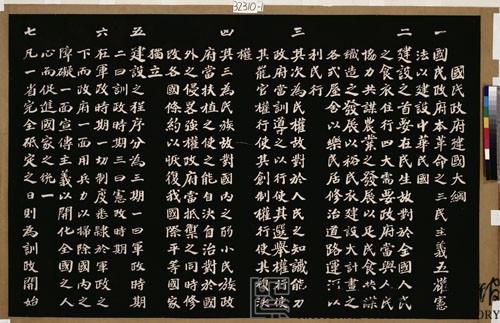 32310-1
國民政府建國大綱
一 國民政府本革命之三民主義五權憲
法以建設中華民國
二 建設之首要在民生故對於全國人民
之食衣住行四大需要政府當與人民
協力共謀農業之發展以足民食共謀
織造之發展以裕民衣建設大計畫之
各式屋舍以樂民居修治道路運河以
利民行
三 其次為民權故對於人民之知識能力
政府當訓導之以行使其選舉權行使
其罷官權行使其創制權行使其複決
權
四 其三為民族故對國內之弱小民族政
府當扶植之使之能自決自治對於國
外之侵略強權政府當抵禦之同時修
改各國條約以恢復我國際平等國家
獨立
五 建設之程序分為三期一曰軍政時期
二曰訓政時期三曰憲政時期
六 在軍政時期一切制度悉隸於軍政之
下而政府一面用兵力以掃除國內之
障礙一面宣傳主義以開化全國之人
心而促進國家之統一
七 凡一省完全底定之日則為訓政開始